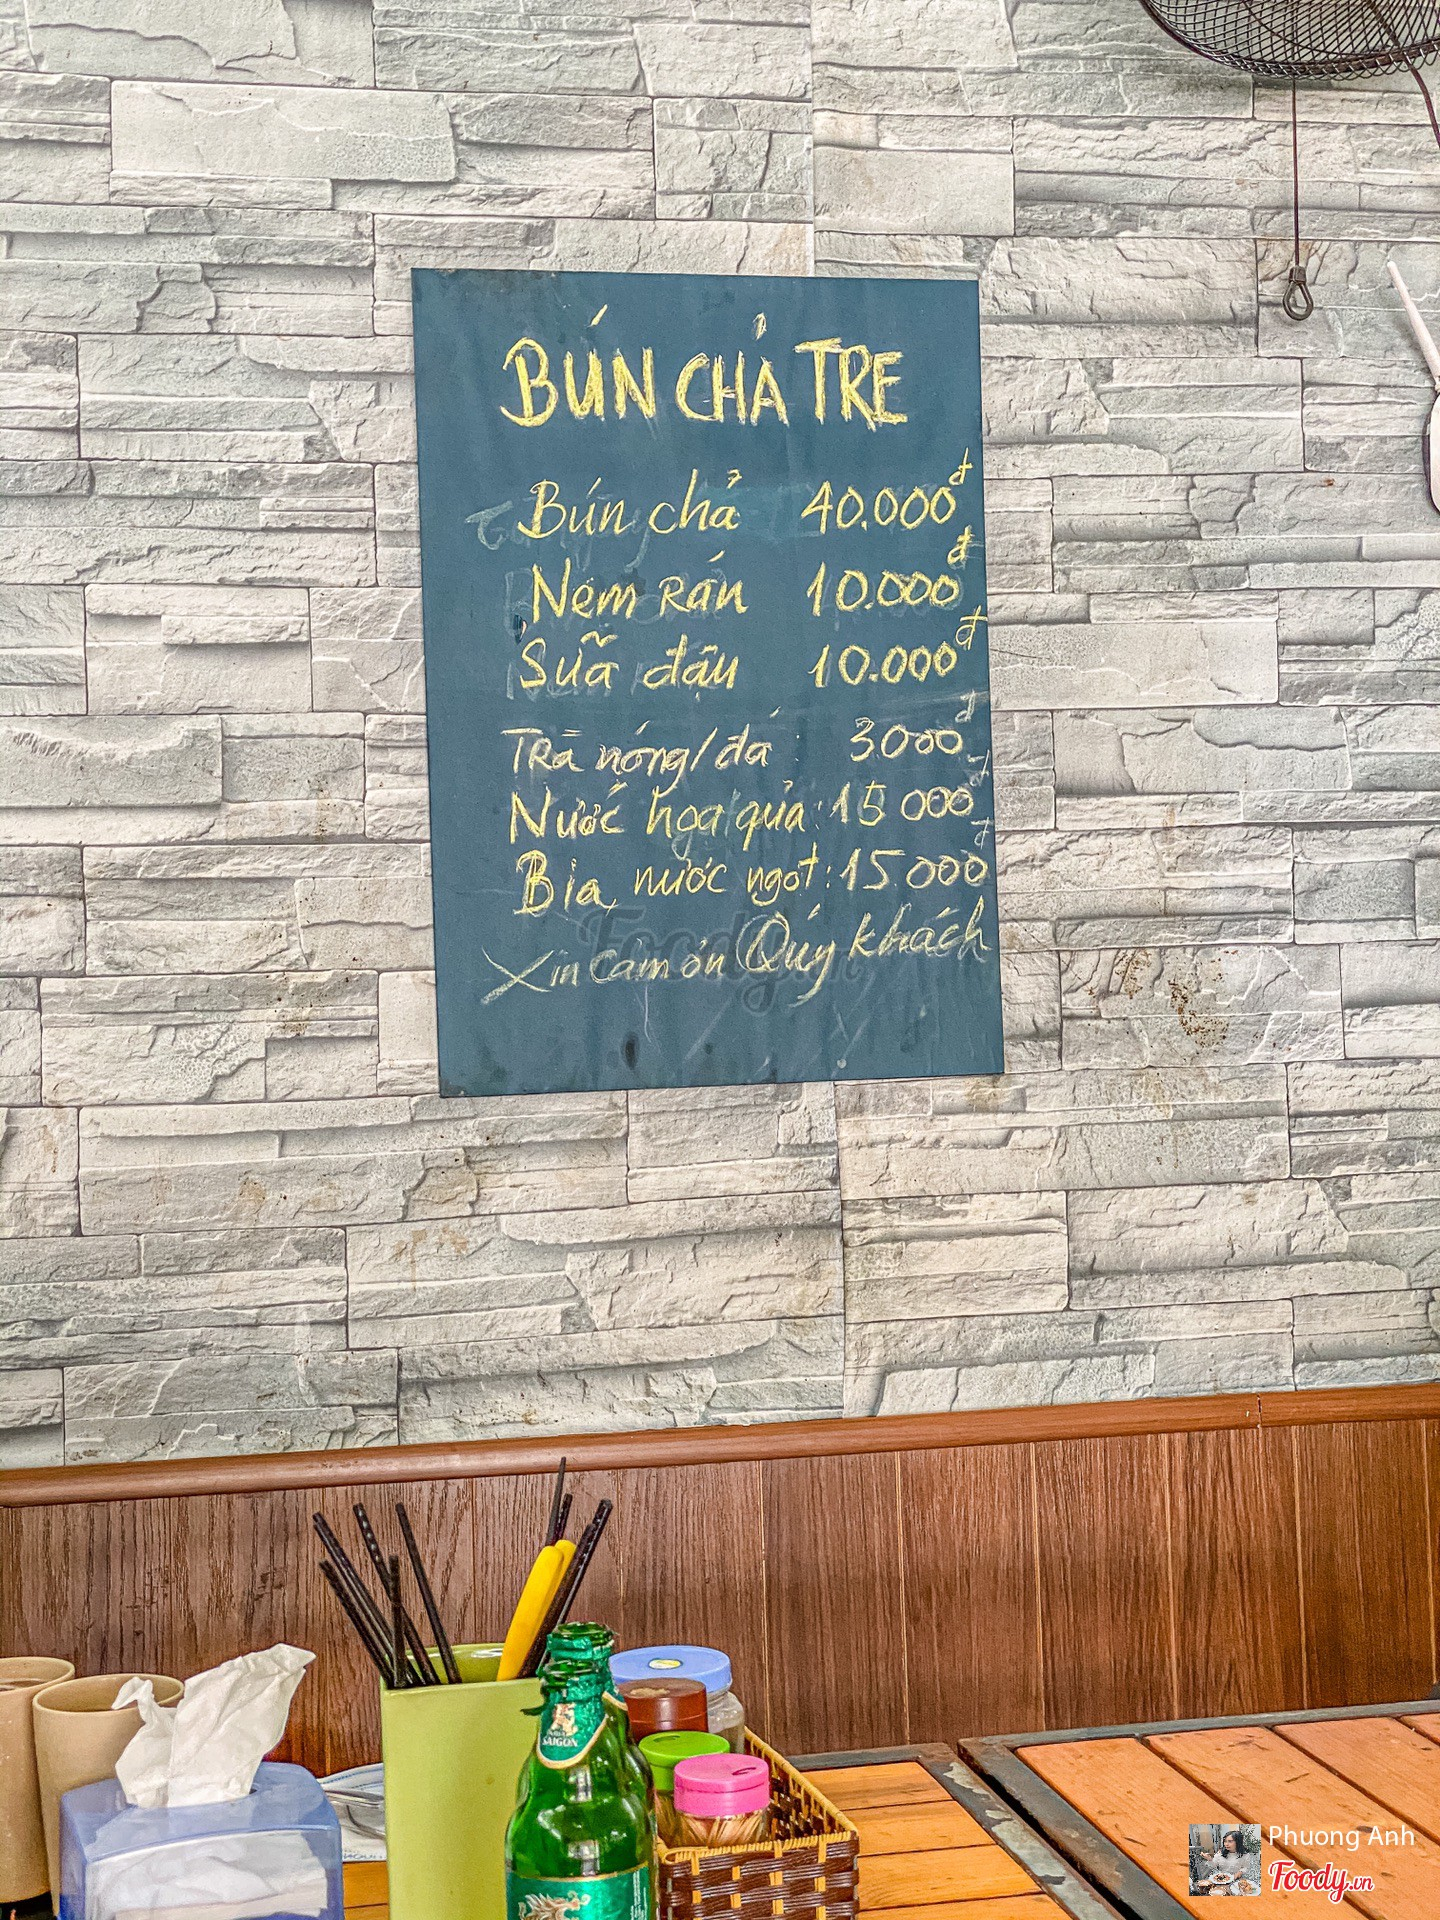 BÚN CHẢ TRE
Bún chả 40.000đ
Nem Rán 10.000đ
Sữa đậu 10.000đ
TRà nóng/đá : 3000đ
Nước hoa quả : 15 000đ
Bia, nước ngọt : 15.000đ
Xin cảm ơn Quý khách
Foody.vn
SAIGON
Phuong Anh
Foody.vn